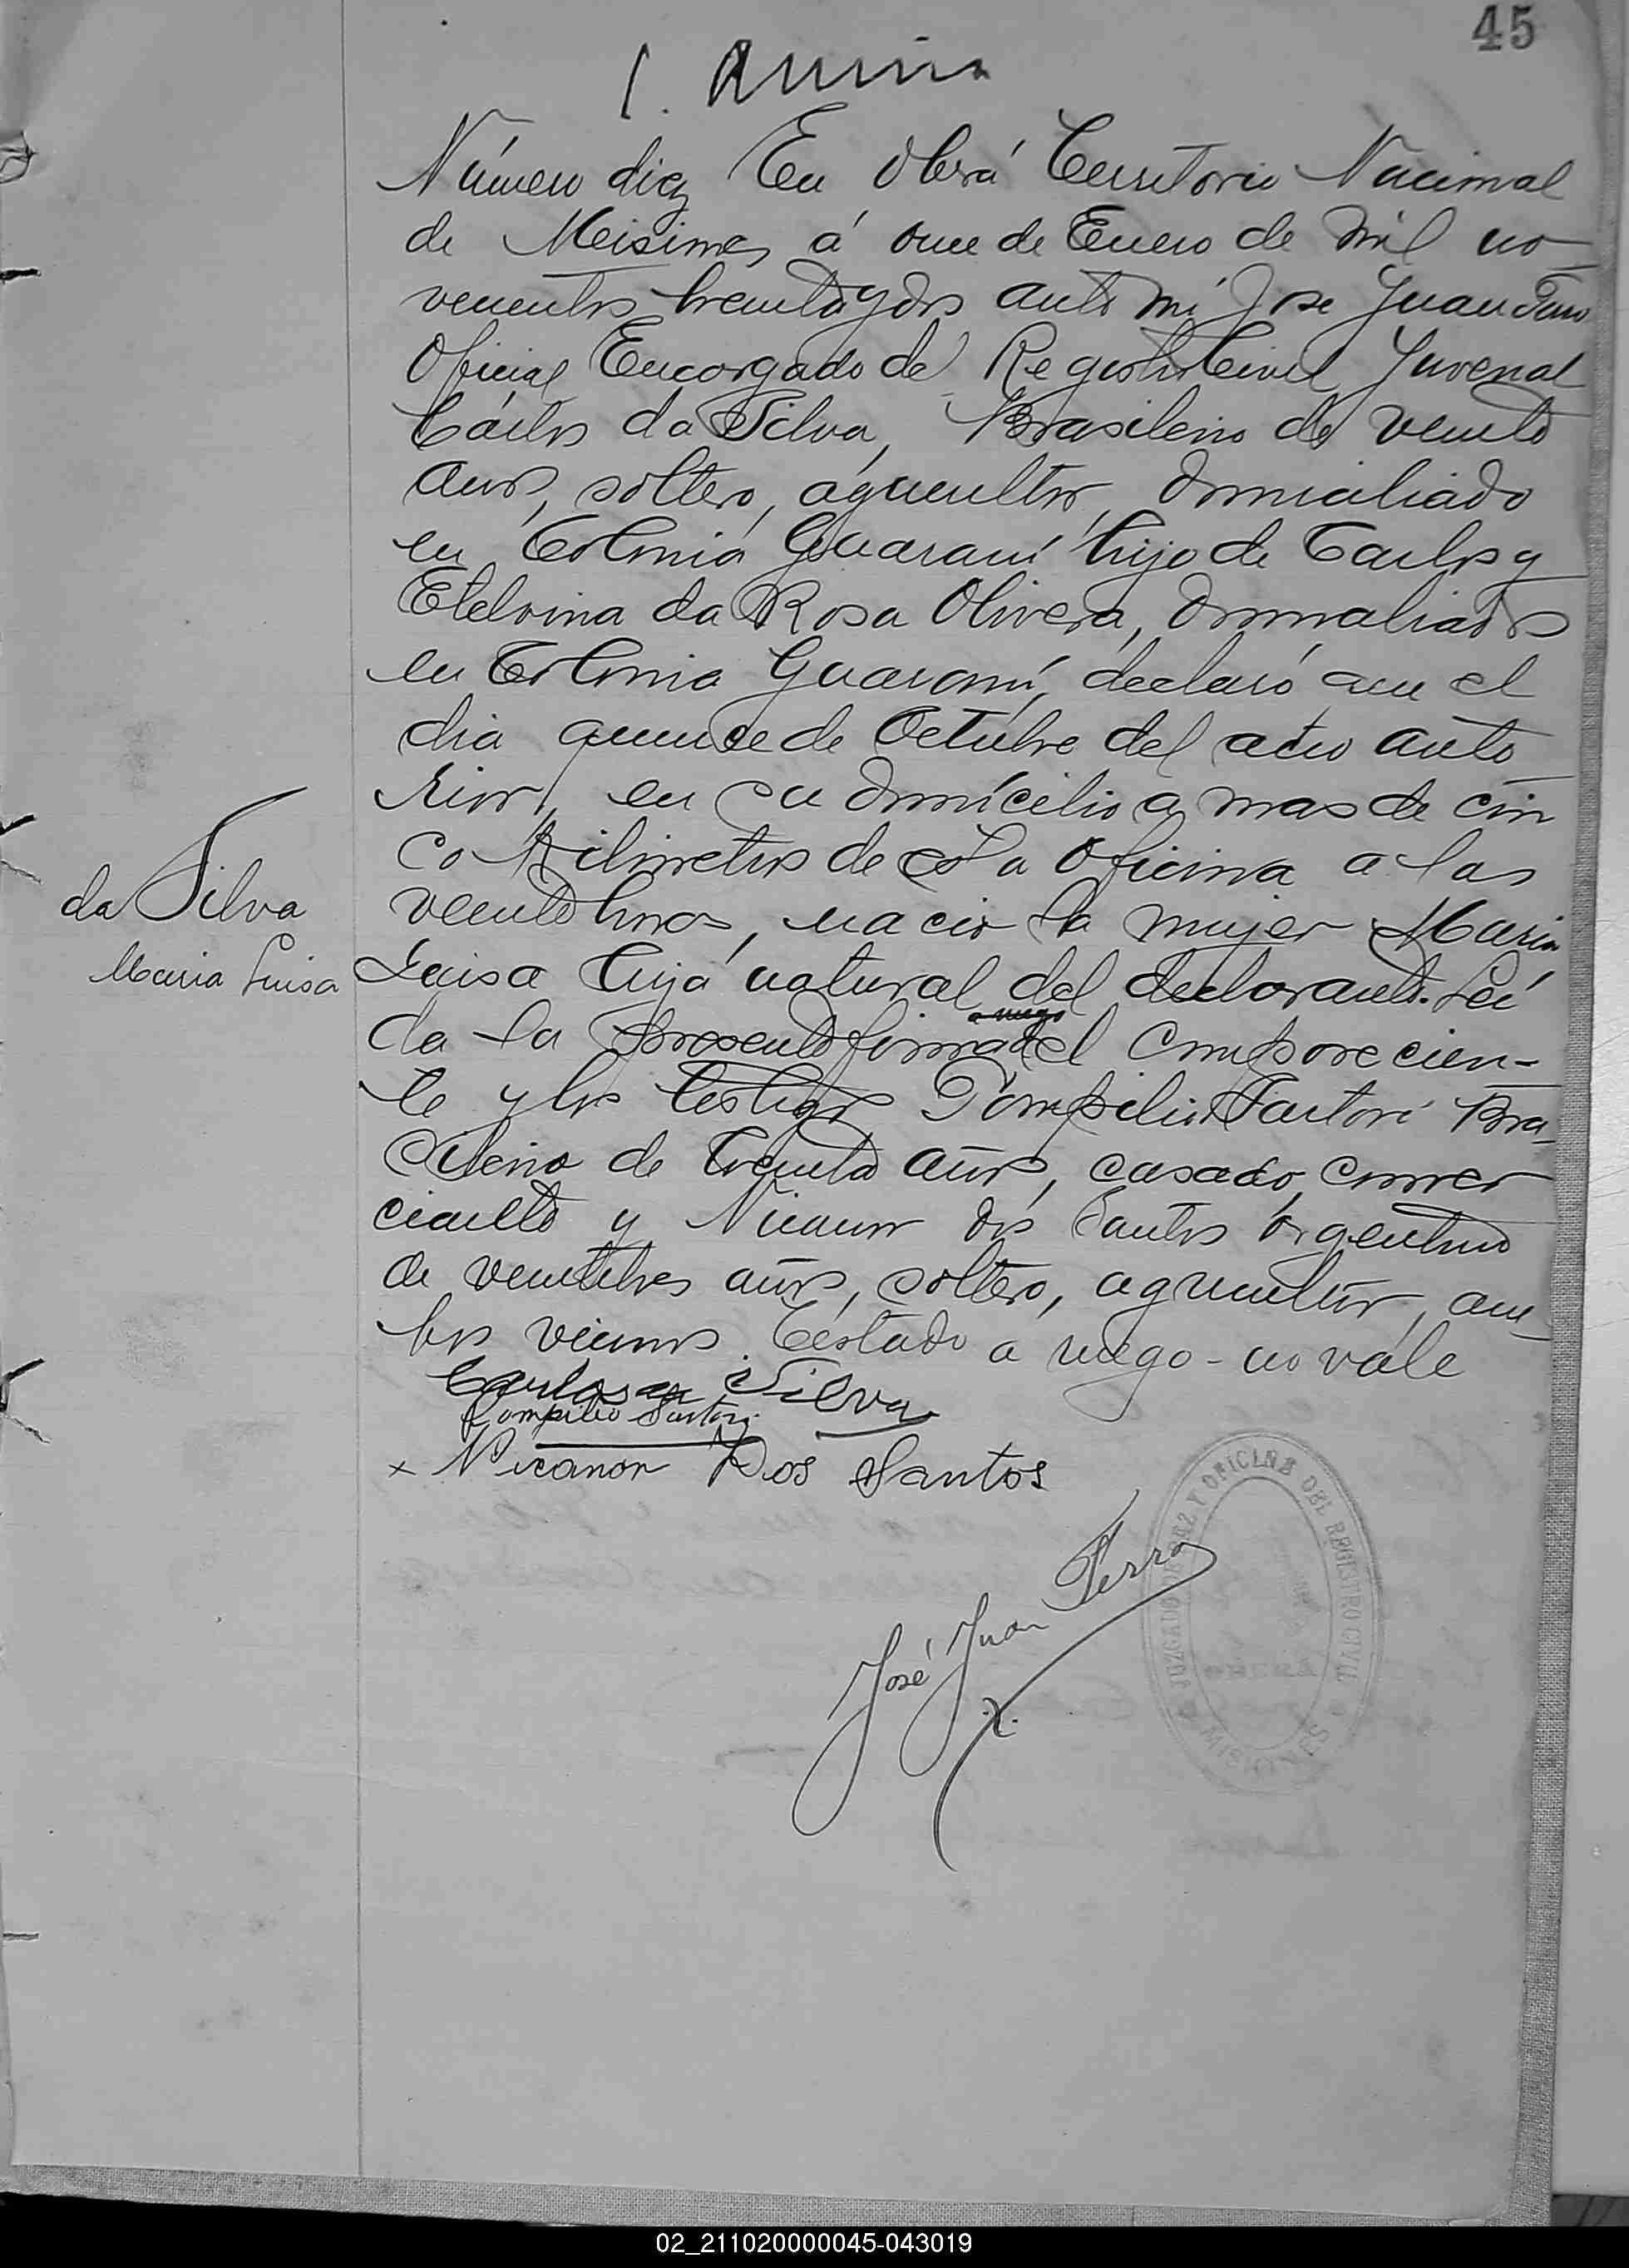 45
Número diez En Oberá Territorio Nacional
de Misiones, á once de Enero de mil no-
vecientos treinta y dos ante mi Jose Juan Terra
Oficial Encargado de Registro Civil Juvenal
Carlos da Silva, Brasileño de veinte
años, soltero, agricultor, domiciliado
en Colonia Guaraní hijo de Carlos y
Etelvina da Rosa Olivera, domiciliados
en Colonia Guaraní, declaró que el
dia quince de Octubre del año ante
rior, en su domicilio a mas de cin
co kilometros de esta Oficina a las
veinte horas, nacio la mujer Maria
Luisa hija natural del declarante. Leí
da la presente firma a ruego el comparecien-
te y los testigos Pompilio Sartori Bra-
sileño de treinta años, casado, comer
ciante y Nicanor dos Santos argentino
de veintitres años, soltero, agricultor, am-
bos vecinos. Testado a ruego - no vale
da Silva
Maria Luisa
Carlos da Silva
Pompilio Sartori
x Nicanor Dos Santos
José Juan Terra
JUZGADO DE PAZ Y OFICINA DEL REGISTRO CIVIL
MISIONES
02_211020000045-043019